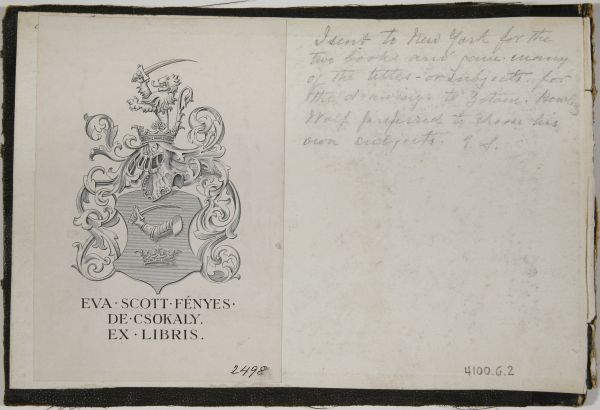 EVA·SCOTT·FÉNYES·
DE·CSOKALY.
EX·LIBRIS.
2498
I sent to New York for the
two books and gave many
of the titles - or subjects. for
the drawings to Zotom. Howling
Wolf preferred to choose his
own subjects. E. S.
4100.G.2